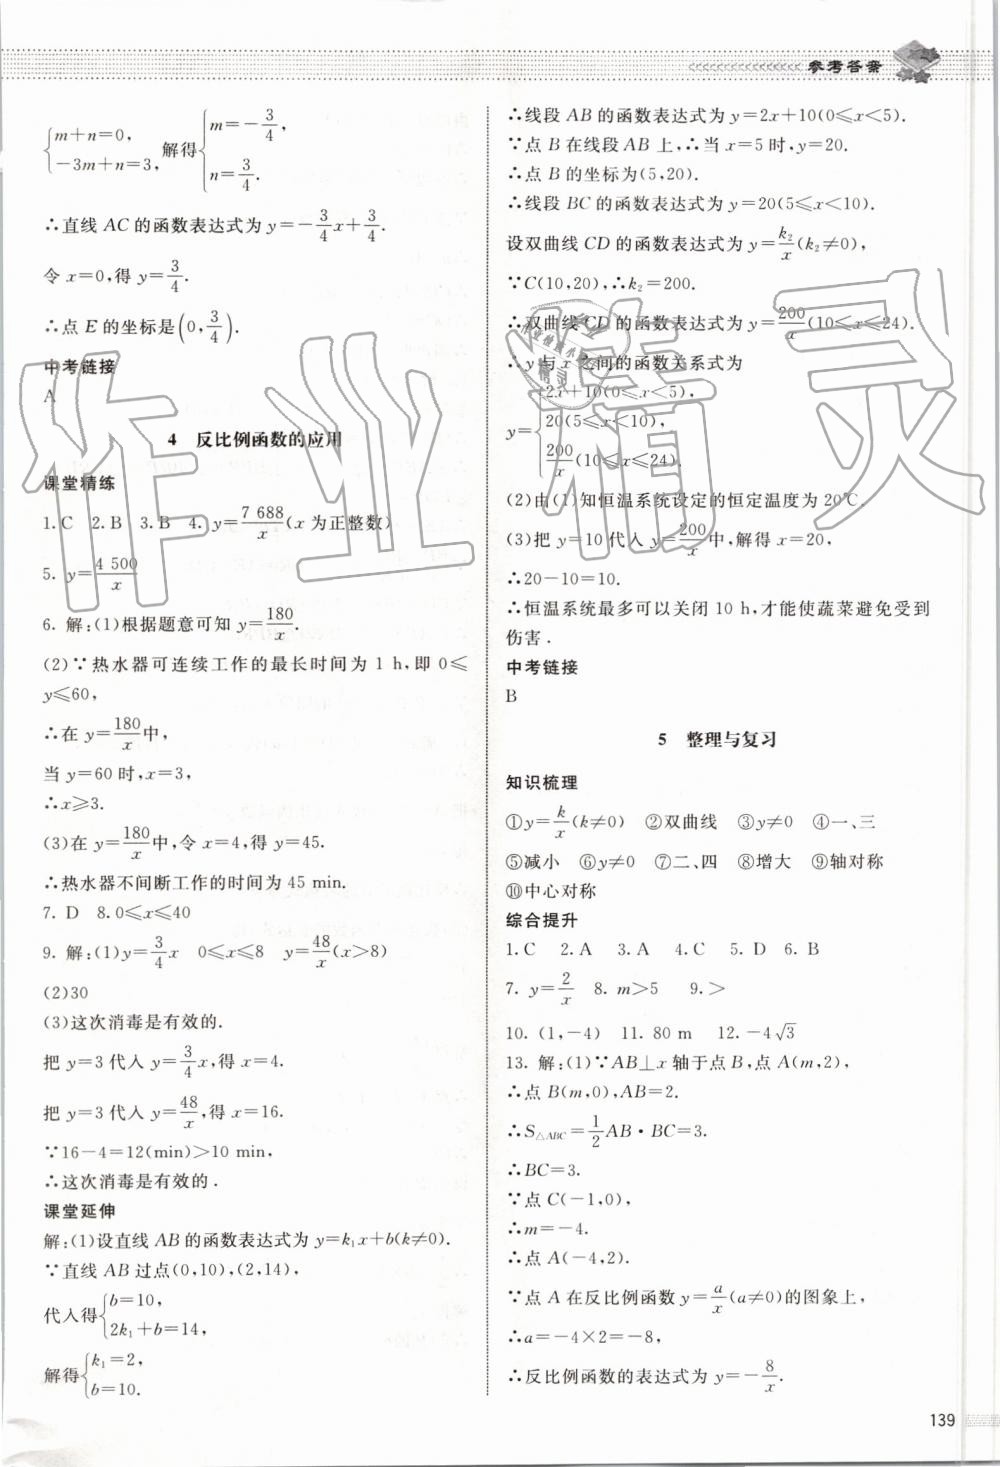 参考答案
{m+n=0, -3m+n=3, 解得{m=-3/4, n=3/4.
∴直线 AC 的函数表达式为 y=-3/4x+3/4.
令 x=0,得 y=3/4.
∴点 E 的坐标是(0,3/4).
中考链接
A
4 反比例函数的应用
课堂精练
1.C 2.B 3.B 4. y=7 688/x(x 为正整数)
5. y=4 500/x
6. 解:(1)根据题意可知 y=180/x.
(2)∵热水器可连续工作的最长时间为 1 h,即 0⩽
y⩽60,
∴在 y=180/x中,
当 y=60 时,x=3,
∴x⩾3.
(3)在 y=180/x中,令 x=4,得 y=45.
∴热水器不间断工作的时间为 45 min.
7. D 8.0⩽x⩽40
9. 解:(1)y=3/4x 0⩽x⩽8 y=48/x(x>8)
(2)30
(3)这次消毒是有效的.
把 y=3 代入 y=3/4x,得 x=4.
把 y=3 代入 y=48/x,得 x=16.
∵16-4=12(min)>10 min,
∴这次消毒是有效的.
课堂延伸
解:(1)设直线 AB 的函数表达式为 y=k₁x+b(k≠0).
∵直线 AB 过点(0,10),(2,14),
代入得{b=10, 2k₁+b=14,
解得{k₁=2, b=10.
∴线段 AB 的函数表达式为 y=2x+10(0⩽x<5).
∵点 B 在线段 AB 上,∴当 x=5 时,y=20.
∴点 B 的坐标为(5,20).
∴线段 BC 的函数表达式为 y=20(5⩽x<10).
设双曲线 CD 的函数表达式为 y=k₂/x(k₂≠0),
∵C(10,20),∴k₂=200.
∴双曲线 CD 的函数表达式为 y=200/x(10⩽x⩽24).
∴y 与 x 之间的函数关系式为
y={2x+10(0⩽x<5),
20(5⩽x<10),
200/x(10⩽x⩽24).
(2)由(1)知恒温系统设定的恒定温度为 20℃.
(3)把 y=10 代入 y=200/x中,解得 x=20,
∴20-10=10.
∴恒温系统最多可以关闭 10 h,才能使蔬菜避免受到
伤害.
中考链接
B
5 整理与复习
知识梳理
①y=k/x(k≠0) ②双曲线 ③y≠0 ④一、三
⑤减小 ⑥y≠0 ⑦二、四 ⑧增大 ⑨轴对称
⑩中心对称
综合提升
1.C 2.A 3.A 4.C 5.D 6.B
7. y=2/x 8. m>5 9.>
10. (1,-4) 11. 80 m 12. -4√3
13. 解:(1)∵AB⊥x 轴于点 B,点 A(m,2),
∴点 B(m,0),AB=2.
∴S△ABC=1/2AB·BC=3.
∴BC=3.
∵点 C(-1,0),
∴m=-4.
∴点 A(-4,2).
∵点 A 在反比例函数 y=a/x(a≠0)的图象上,
∴a=-4×2=-8,
∴反比例函数的表达式为 y=-8/x.
139
作业精灵